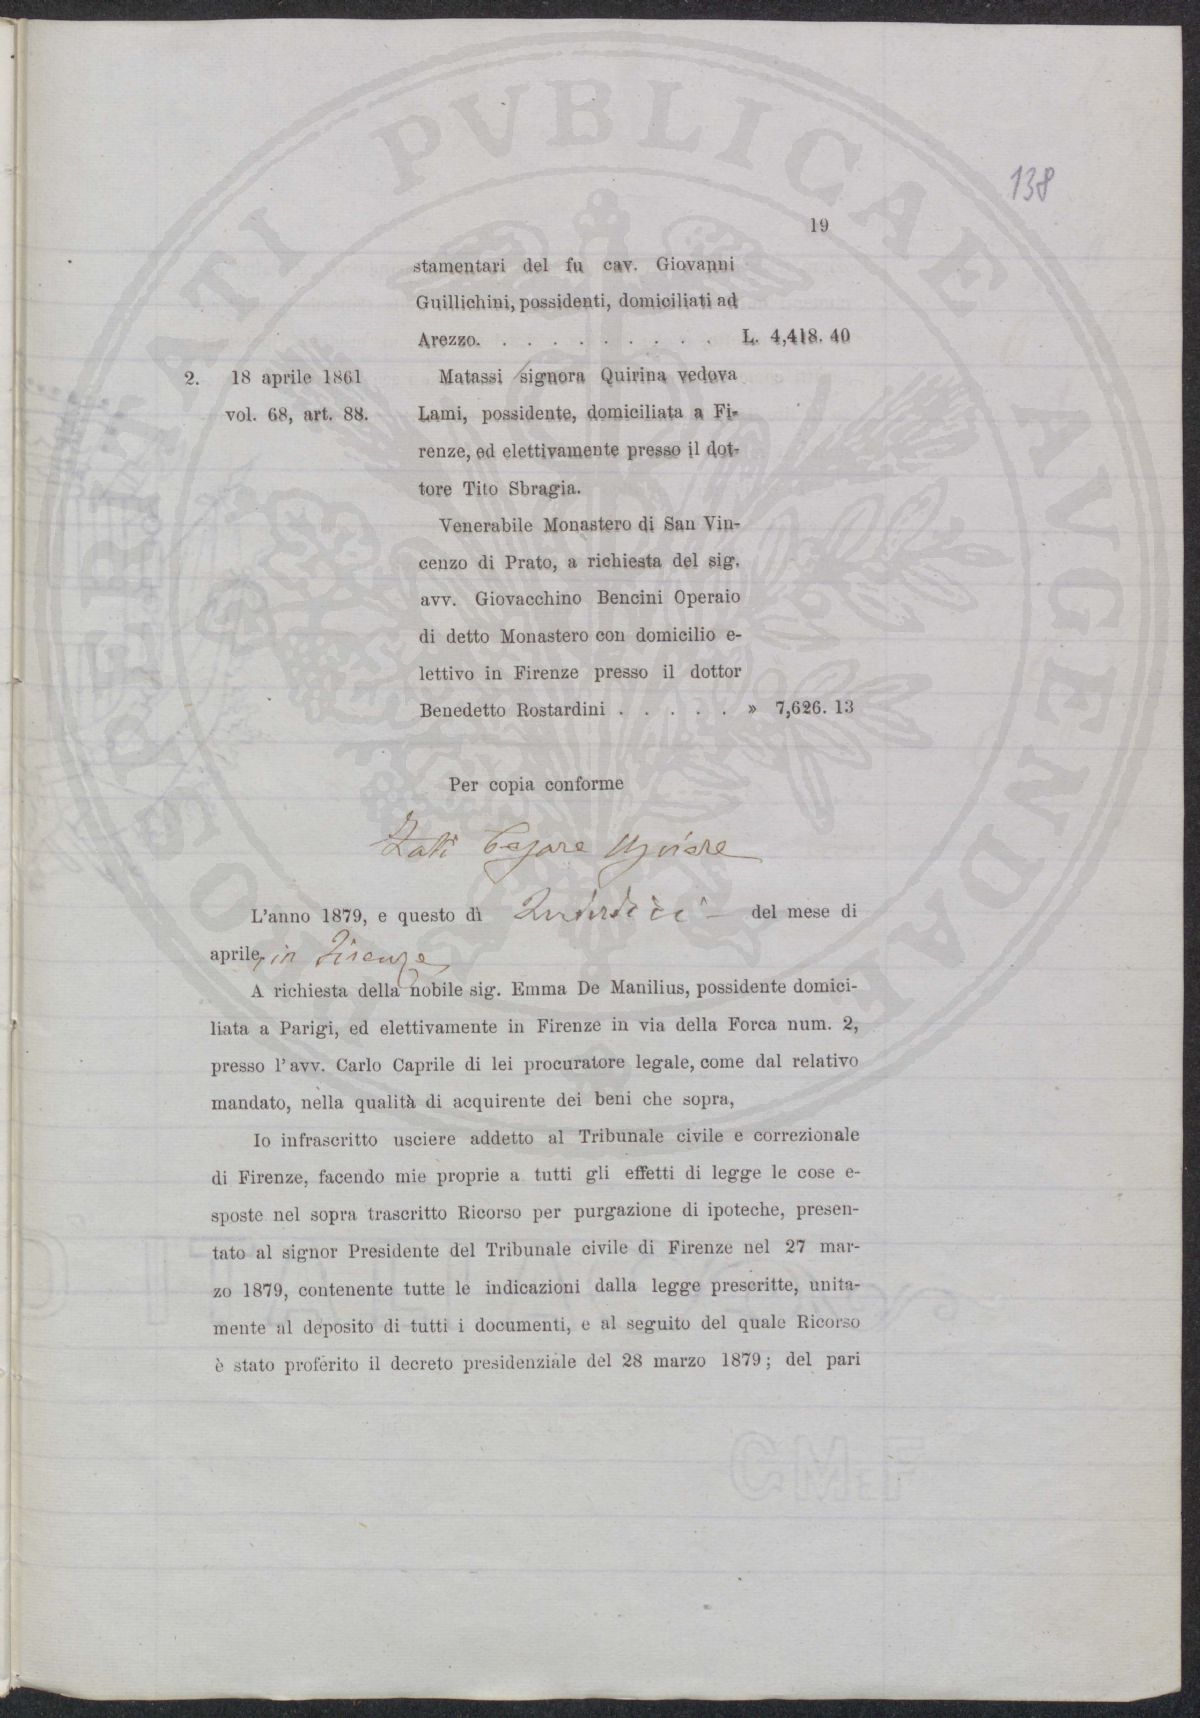 138
19
stamentari del fu cav. Giovanni
Guillichini, possidenti, domiciliati ad
Arezzo. . . . . . . . . . L. 4,418. 40
2. 18 aprile 1861 Matassi signora Quirina vedova
vol. 68, art. 88. Lami, possidente, domiciliata a Fi-
renze, ed elettivamente presso il dot-
tore Tito Sbragia.
Venerabile Monastero di San Vin-
cenzo di Prato, a richiesta del sig.
avv. Giovacchino Bencini Operaio
di detto Monastero con domicilio e-
lettivo in Firenze presso il dottor
Benedetto Rostardini . . . . . » 7,626. 13
Per copia conforme
Cesare Usciere
L'anno 1879, e questo dì del mese di
aprile, in Firenze
A richiesta della nobile sig. Emma De Manilius, possidente domici-
liata a Parigi, ed elettivamente in Firenze in via della Forca num. 2,
presso l'avv. Carlo Caprile di lei procuratore legale, come dal relativo
mandato, nella qualità di acquirente dei beni che sopra,
Io infrascritto usciere addetto al Tribunale civile e correzionale
di Firenze, facendo mie proprie a tutti gli effetti di legge le cose e-
sposte nel sopra trascritto Ricorso per purgazione di ipoteche, presen-
tato al signor Presidente del Tribunale civile di Firenze nel 27 mar-
zo 1879, contenente tutte le indicazioni dalla legge prescritte, unita-
mente al deposito di tutti i documenti, e al seguito del quale Ricorso
è stato proferito il decreto presidenziale del 28 marzo 1879; del pari